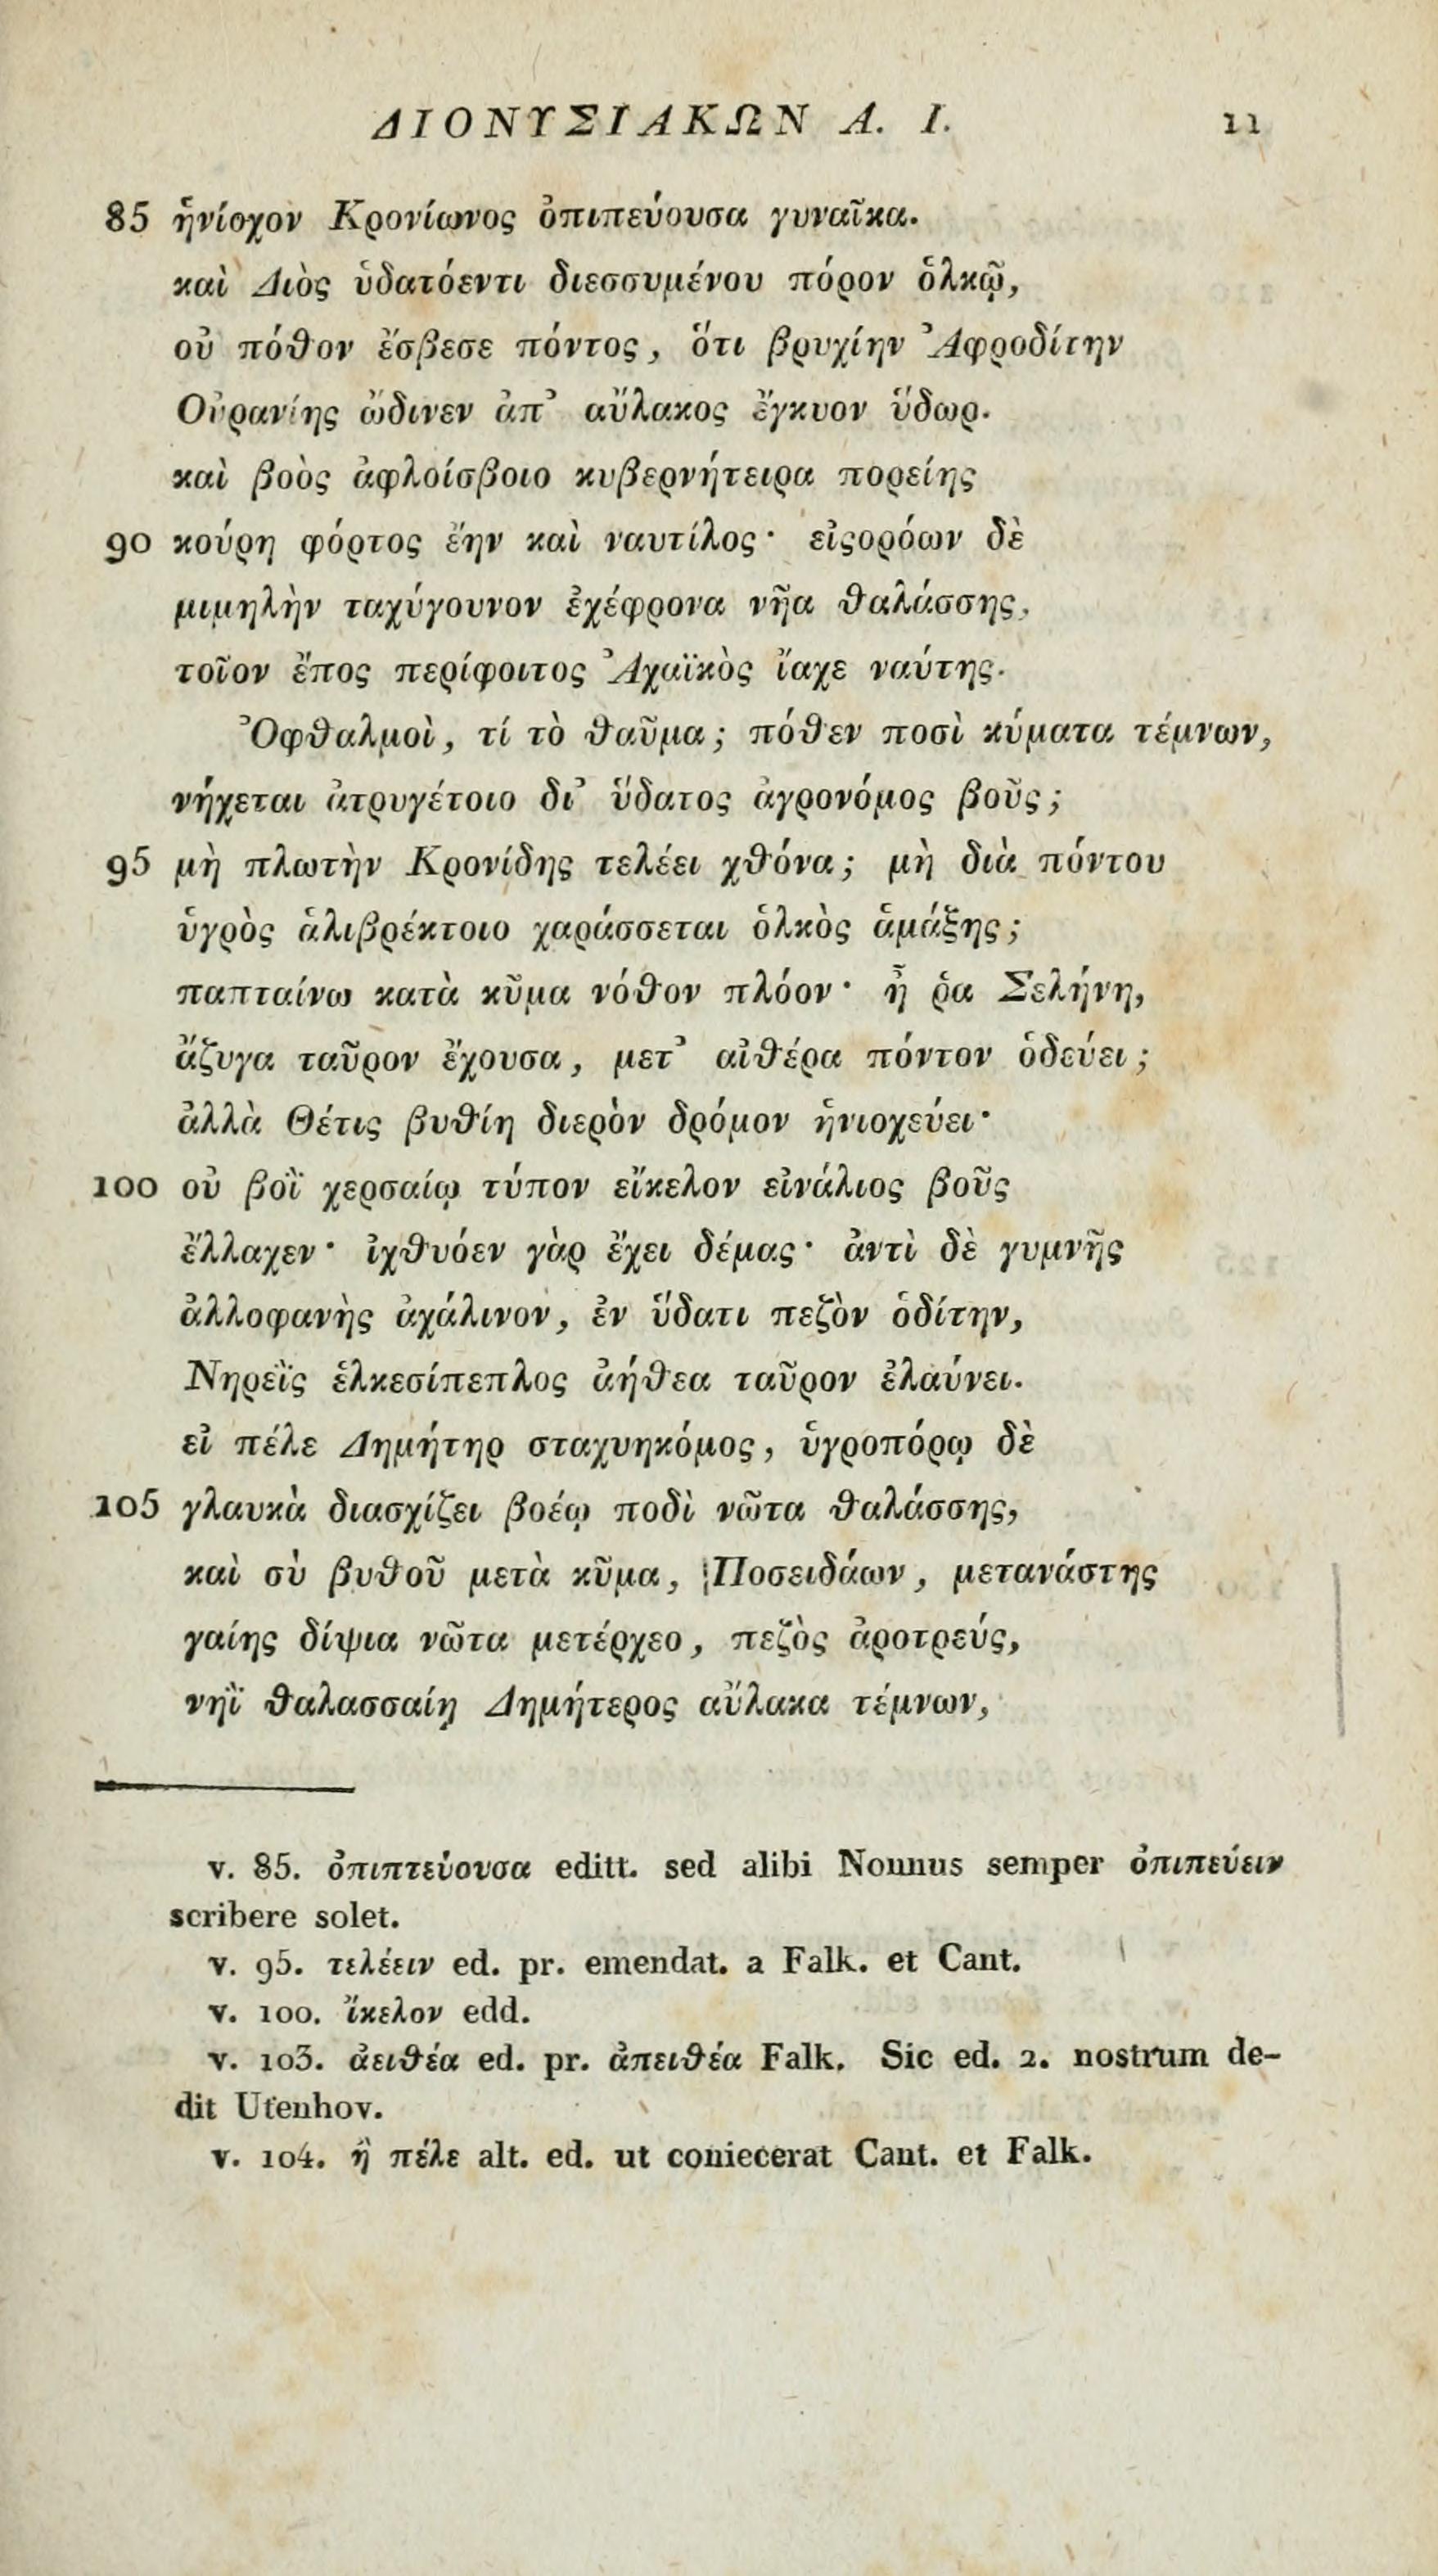 ΔΙΟΝΥΣΙΑΚΩΝ Α. Ι. 11
85 ἡνίοχον Κρονίωνος ὀπιπεύουσα γυναῖκα.
καὶ Διὸς ὑδατόεντι διεσσυμένου πόρον ὁλκῷ,
οὐ πόθον ἔσβεσε πόντος, ὅτι βρυχίην Ἀφροδίτην
Οὐρανίης ὤδινεν ἀπ’ αὔλακος ἔγκυον ὕδωρ.
καὶ βοὸς ἀφλοίσβοιο κυβερνήτειρα πορείης
90 κούρη φόρτος ἔην καὶ ναυτίλος· εἰςορόων δὲ
μιμηλὴν ταχύγουνον ἐχέφρονα νῆα θαλάσσης,
τοῖον ἔπος περίφοιτος Ἀχαϊκὸς ἴαχε ναύτης.
Ὀφθαλμοὶ, τί τὸ θαῦμα; πόθεν ποσὶ κύματα τέμνων,
νήχεται ἀτρυγέτοιο δι’ ὕδατος ἀγρονόμος βοῦς;
95 μὴ πλωτὴν Κρονίδης τελέει χθόνα; μὴ διὰ πόντου
ὑγρὸς ἁλιβρέκτοιο χαράσσεται ὁλκὸς ἁμάξης;
παπταίνω κατὰ κῦμα νόθον πλόον· ἦ ῥα Σελήνη,
ἄζυγα ταῦρον ἔχουσα, μετ’ αἰθέρα πόντον ὁδεύει;
ἀλλὰ Θέτις βυθίη διερὸν δρόμον ἡνιοχεύει·
100 οὐ βοῒ χερσαίῳ τύπον εἴκελον εἰνάλιος βοῦς
ἔλλαχεν· ἰχθυόεν γὰρ ἔχει δέμας· ἀντὶ δὲ γυμνῆς
ἀλλοφανὴς ἀχάλινον, ἐν ὕδατι πεζὸν ὁδίτην,
Νηρεῒς ἑλκεσίπεπλος ἀήθεα ταῦρον ἐλαύνει.
εἰ πέλε Δημήτηρ σταχυηκόμος, ὑγροπόρῳ δὲ
105 γλαυκὰ διασχίζει βοέῳ ποδὶ νῶτα θαλάσσης,
καὶ σὺ βυθοῦ μετὰ κῦμα, Ποσειδάων, μετανάστης
γαίης δίψια νῶτα μετέρχεο, πεζὸς ἀροτρεύς,
νηῒ θαλασσαίῃ Δημήτερος αὔλακα τέμνων,
v. 85. ὀπιπτεύουσα editt. sed alibi Nonnus semper ὀπιπεύειν
scribere solet.
v. 95. τελέειν ed. pr. emendat. a Falk. et Cant.
v. 100. ἴκελον edd.
v. 103. ἀειθέα ed. pr. ἀπειθέα Falk. Sic ed. 2. nostrum de-
dit Utenhov.
v. 104. ἢ πέλε alt. ed. ut coniecerat Cant. et Falk.